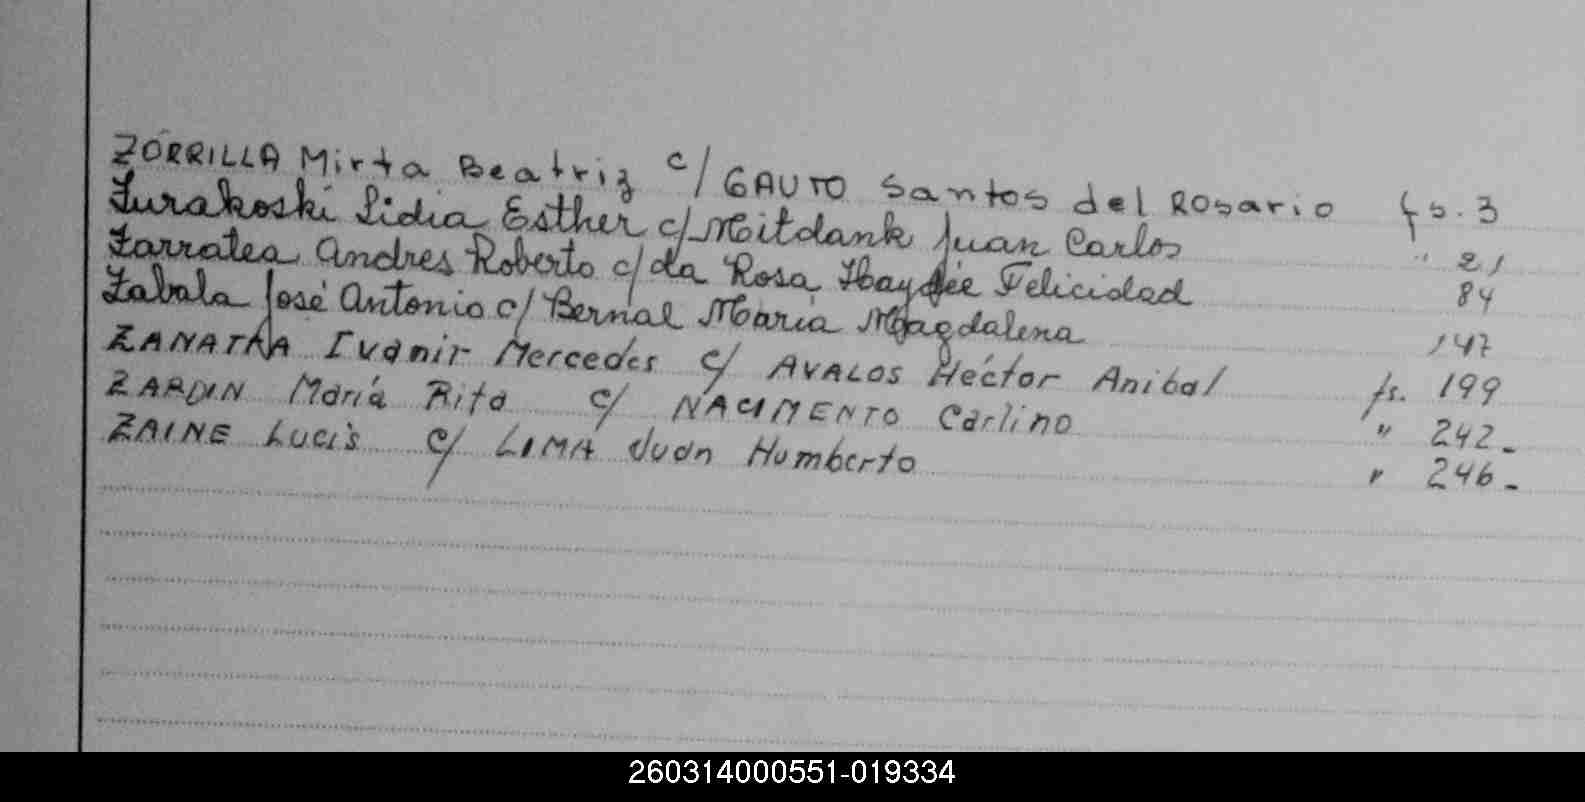 ZORRILLA Mirta Beatriz c/ GAUTO Santos del Rosario fs. 3
Zurakoski Lidia Esther c/ Mitdank Juan Carlos " 21
Zarratea Andres Roberto c/ da Rosa Haydée Felicidad 84
Zabala José Antonio c/ Bernal Maria Magdalena 147
ZANATTA Ivanir Mercedes c/ AVALOS Héctor Anibal fs. 199
ZARDIN María Rita c/ NACIMENTO Carlino " 242-
ZAINE c/ LIMA Juan Humberto " 246-
260314000551-019334